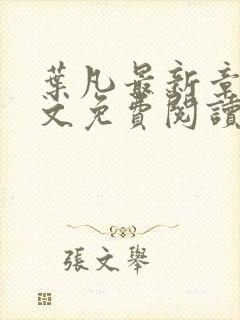 葉凡最新章
文免費閱讀
張文舉